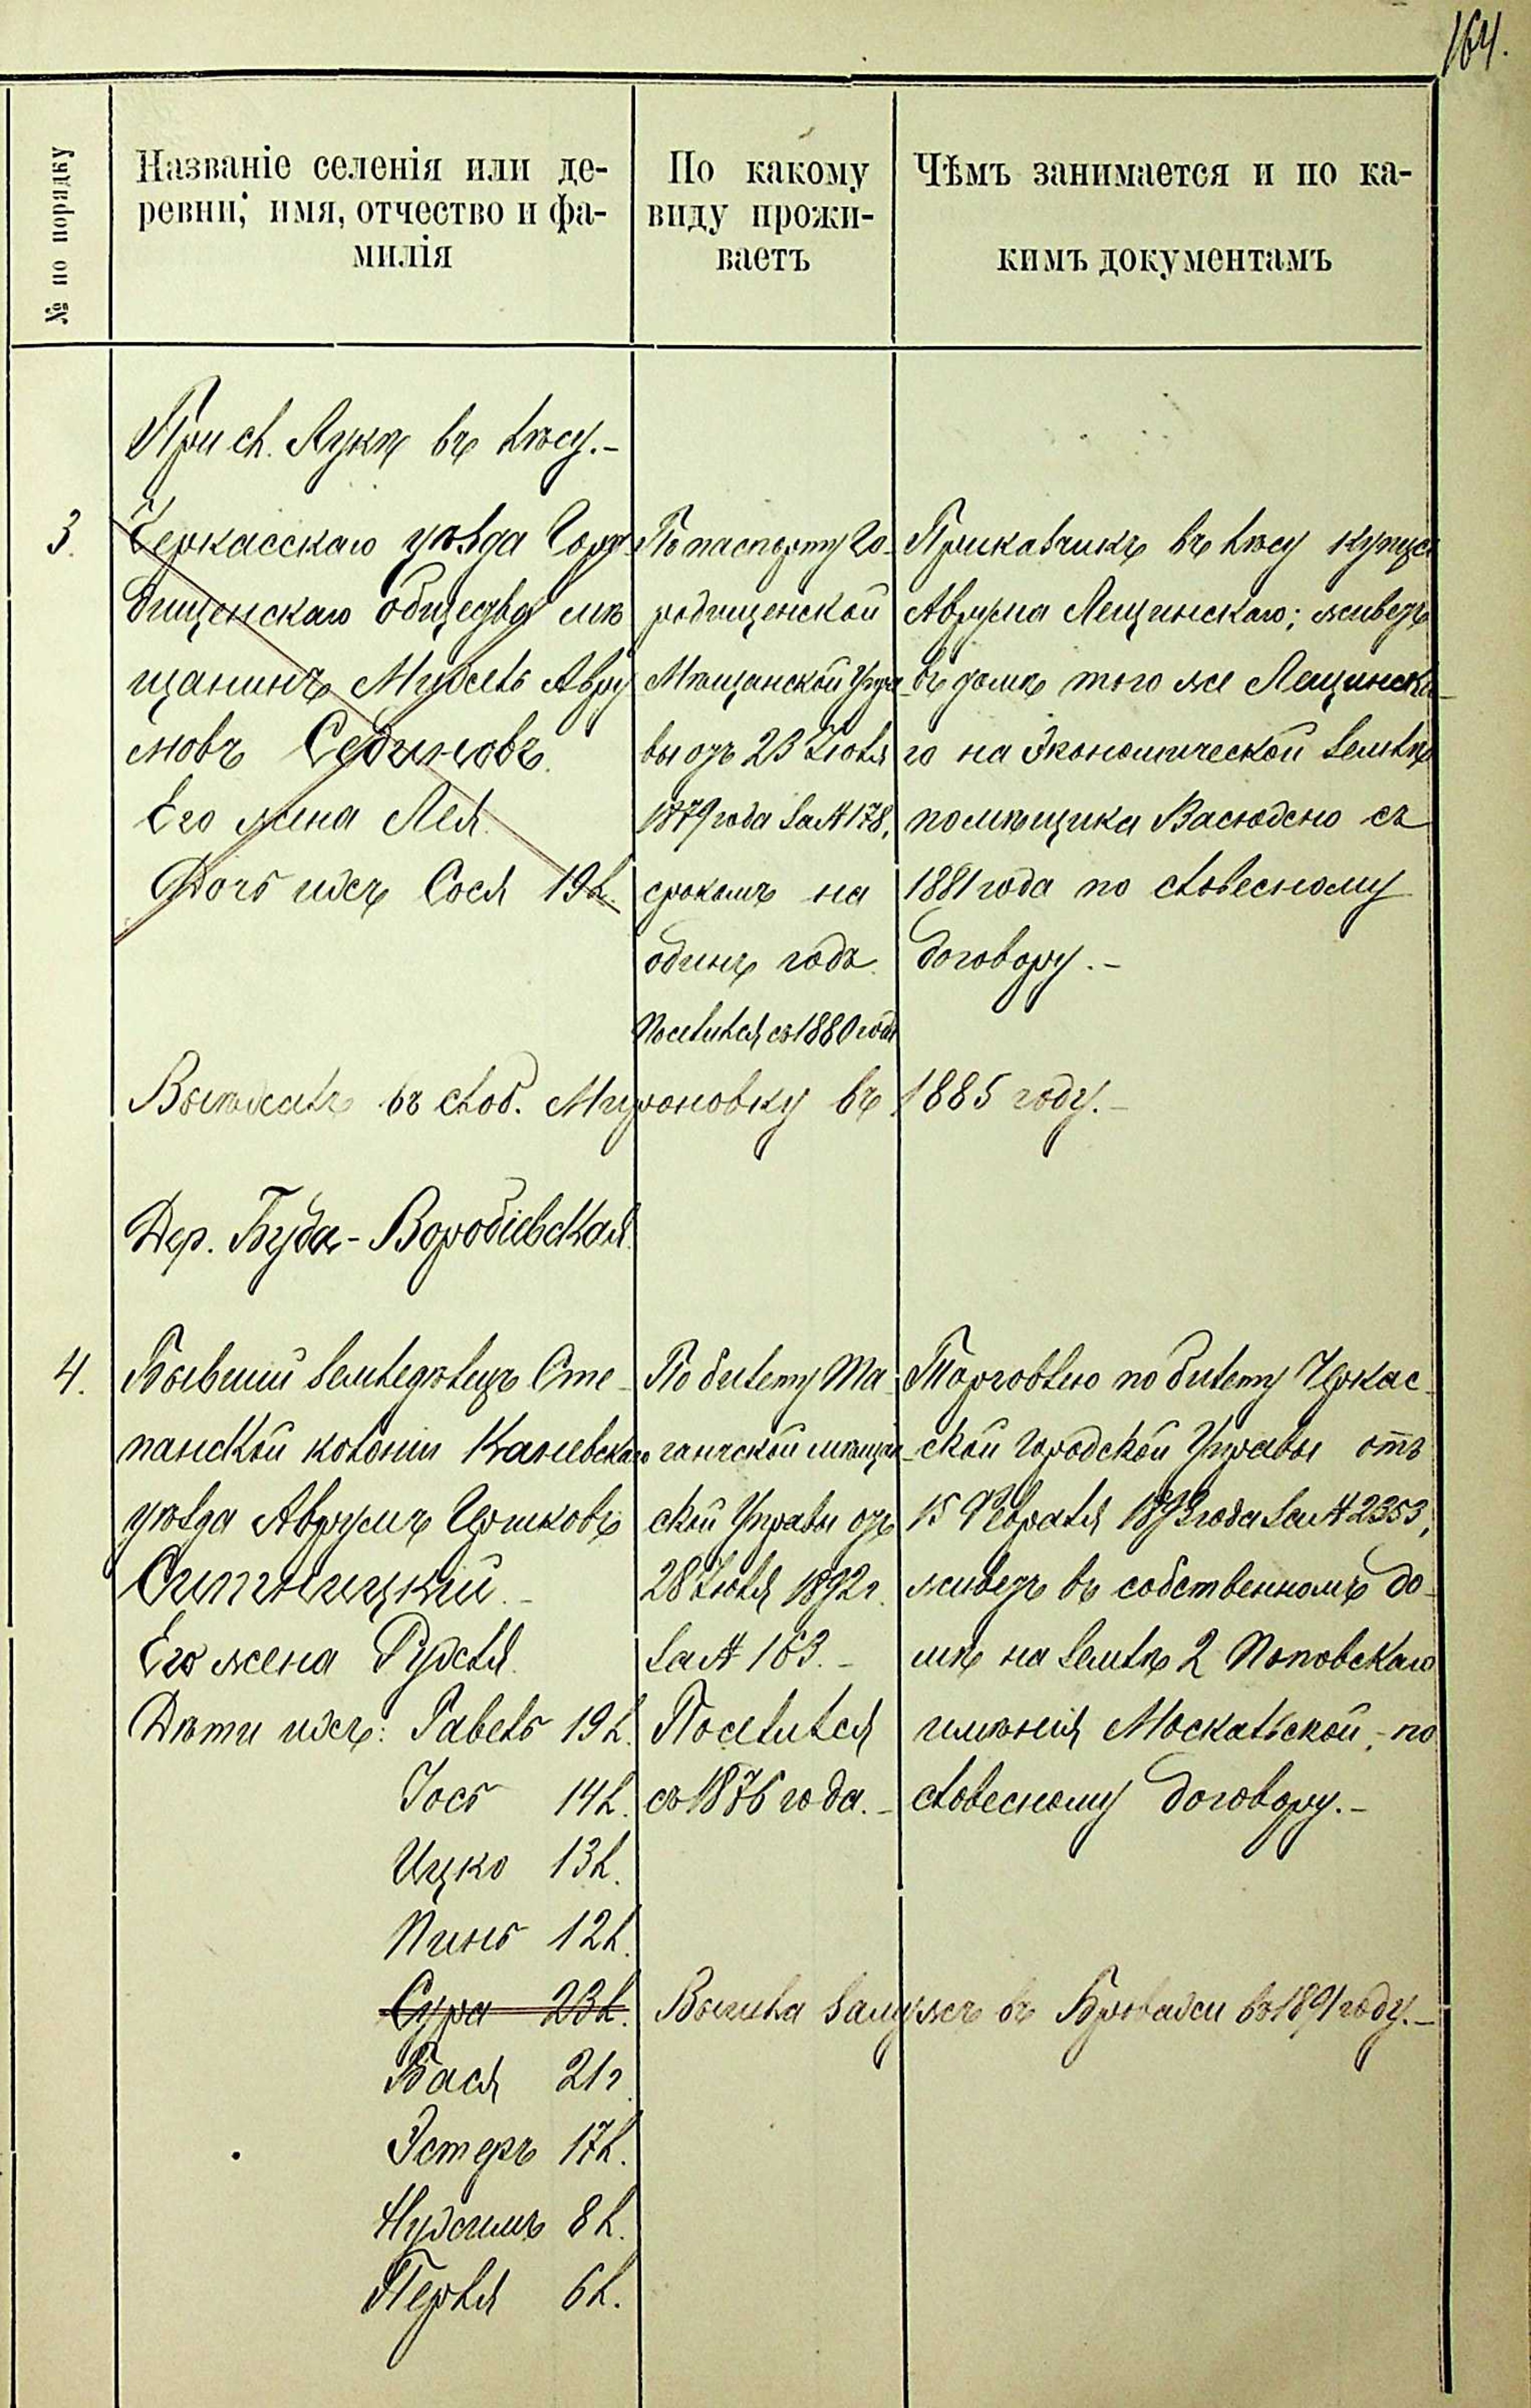 164.
№ по порядку
Названіе селенія или де-
ревни; имя, отчество и фа-
милія
По какому
виду прожи-
ваетъ
Чѣмъ занимается и по ка-
кимъ документамъ
При сл. Лукѣ въ лѣсу.-
3.
Черкасскаго уѣзда Горо-
дищенскаго общества мѣ
щанинъ Мухель Авру
мовъ
Его жена Лея.
Дочь ихъ Сося 19 л.
По паспорту Го-
родищенской
Мѣщанской Упра-
вы отъ 23 Іюля
1879 года за № 178,
срокомъ на
одинъ годъ.
Поселился съ 1880 года
Прикащикъ въ лѣсу купца
Аврума Лещинскаго; живетъ
въ домѣ того же Лещинска-
го на Экономической землѣ
помѣщика съ
1881 года по словесному
договору.-
Выѣхалъ въ слоб. Мироновку въ 1885 году.-
Дер. Буда-Воробіевская.
4.
Бывшій земледѣлецъ Сте-
панской колоніи Каневскаго
уѣзда Аврумъ Гершковъ
Ситницкій.-
Его жена Рухля.
Дѣти ихъ: Равель 19 л.
Іось 14 л.
Ицко 13 л.
Пинь 12 л.
Сура 23 л.
Бася 21 г.
Эстеръ 17 л.
Нухимъ 8 л.
Перля 6 л.
По билету Та-
ганчской мѣщан-
ской Управы отъ
28 Іюля 1892 г.
за № 163.-
Поселился
съ 1876 года.-
Торговлею по билету Черкас-
ской Городской Управы отъ
15 Февраля 1893 года за № 2353;
живетъ въ собственномъ до-
мѣ на землѣ 2 Поповскаго
имѣнія Москальской,- по
словесному договору.-
Вышла замужъ въ Бровахи въ 1891 году.-